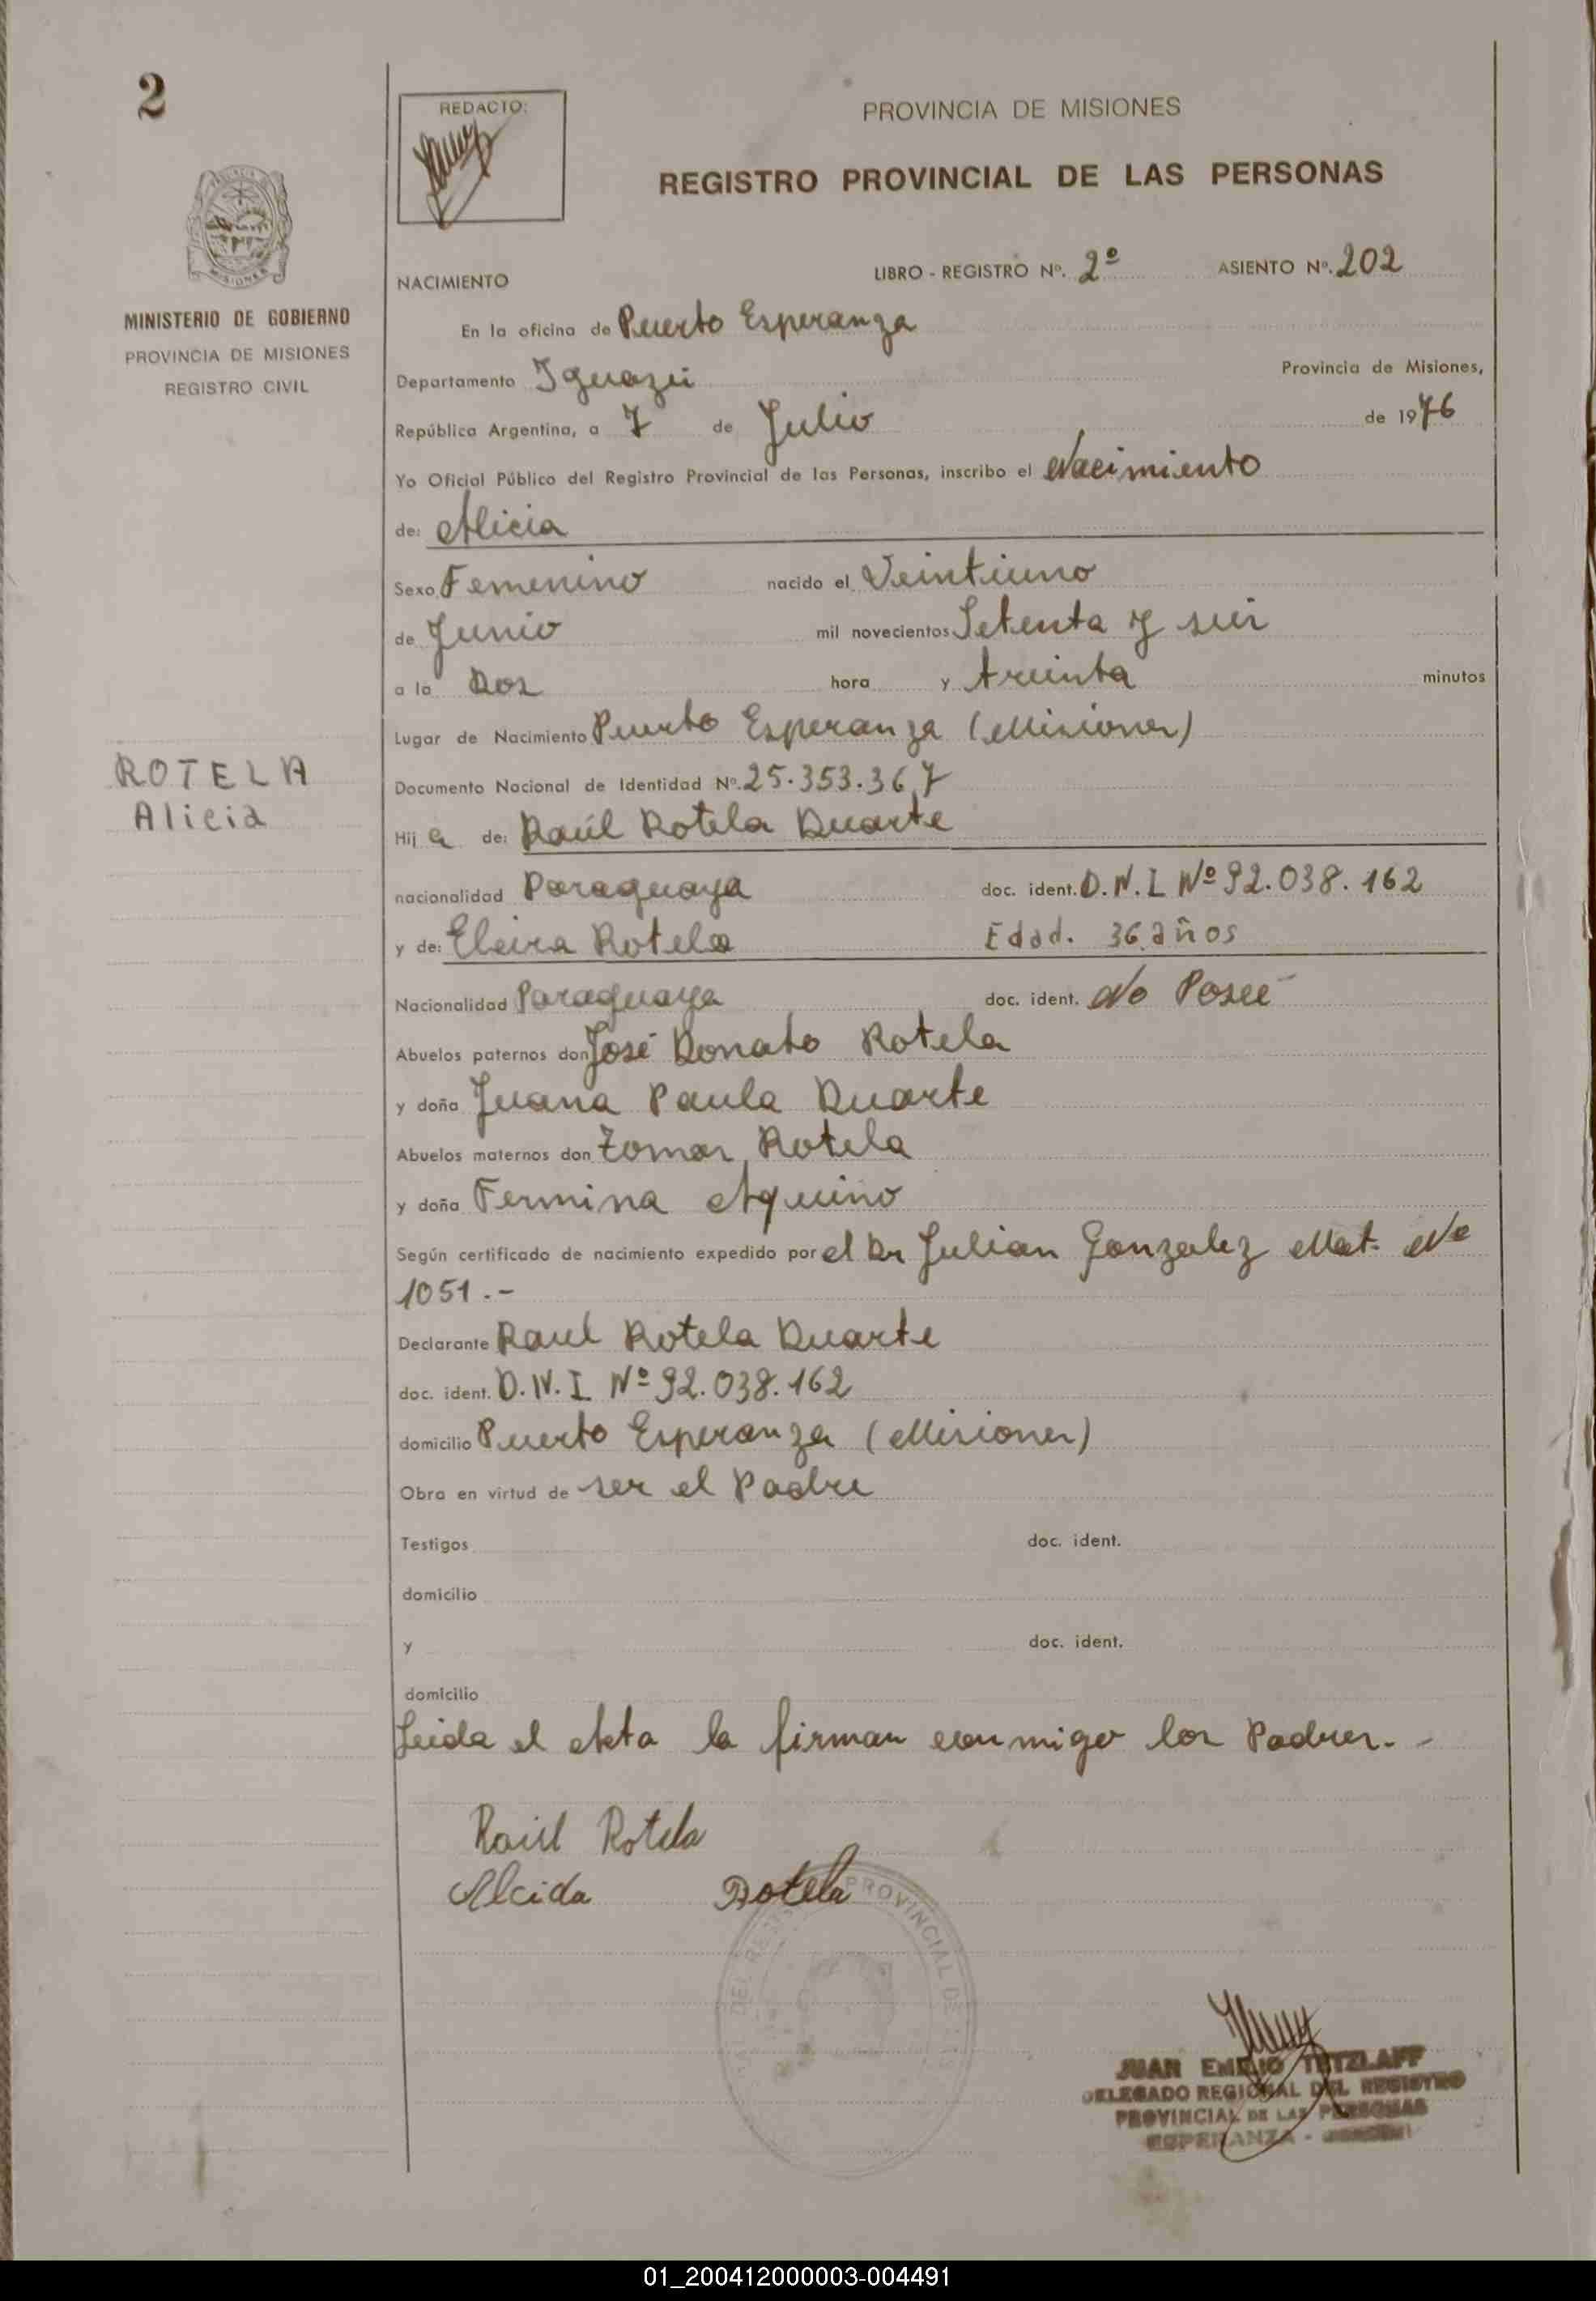 2
REDACTO:
PROVINCIA DE MISIONES
REGISTRO PROVINCIAL DE LAS PERSONAS
MISIONES
MINISTERIO DE GOBIERNO
PROVINCIA DE MISIONES
REGISTRO CIVIL
NACIMIENTO LIBRO - REGISTRO Nº. 2º ASIENTO Nº. 202
En la oficina de Puerto Esperanza
Departamento Iguazú Provincia de Misiones,
República Argentina, a 7 de Julio de 1976
Yo Oficial Público del Registro Provincial de las Personas, inscribo el Nacimiento
de: Alicia
Sexo Femenino nacido el Veintiuno
de Junio mil novecientos Setenta y seis
a la Dos hora y treinta minutos
Lugar de Nacimiento Puerto Esperanza (Misiones)
ROTELA
Alicia
Documento Nacional de Identidad Nº. 25.353.367
Hij a de: Raúl Rotela Duarte
nacionalidad Paraguaya doc. ident. D.N.I Nº 92.038.162
y de: Rotela Edad. 36 años
Nacionalidad Paraguaya doc. ident. No Posee
Abuelos paternos don José Donato Rotela
y doña Juana Paula Duarte
Abuelos maternos don Tomas Rotela
y doña Fermina Aquino
Según certificado de nacimiento expedido por el Dr Julian Gonzalez Mat. No
1051.-
Declarante Raul Rotela Duarte
doc. ident. D.N.I Nº 92.038.162
domicilio Puerto Esperanza (Misiones)
Obra en virtud de ser el Padre
Testigos doc. ident.
domicilio
y doc. ident.
domicilio
Leida el Acta la firman conmigo los Padres.-
Raúl Rotela
Alcida Rotela
PROVINCIAL DE
JUAN EMILIO TETZLAFF
DELEGADO REGIONAL DEL REGISTRO
PROVINCIAL DE LAS PERSONAS
ESPERANZA -
01_200412000003-004491